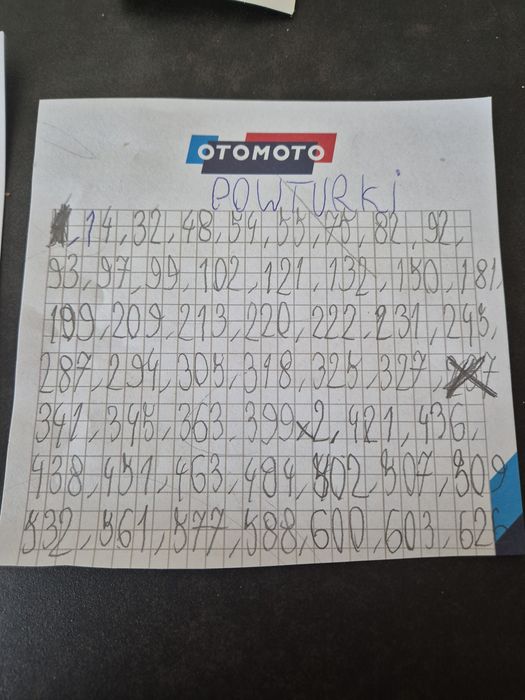 OTOMOTO
POWTURKI
14, 32, 48, 54, 55, 75, 82, 92,
93, 97, 99, 102, 121, 132, 150, 181,
199, 209, 213, 220, 222, 231, 245,
287, 294, 305, 318, 325, 327,
341, 345, 363, 399x2, 421, 436,
438, 451, 463, 494, 502, 507, 509
532, 561, 577, 588, 600, 603, 626